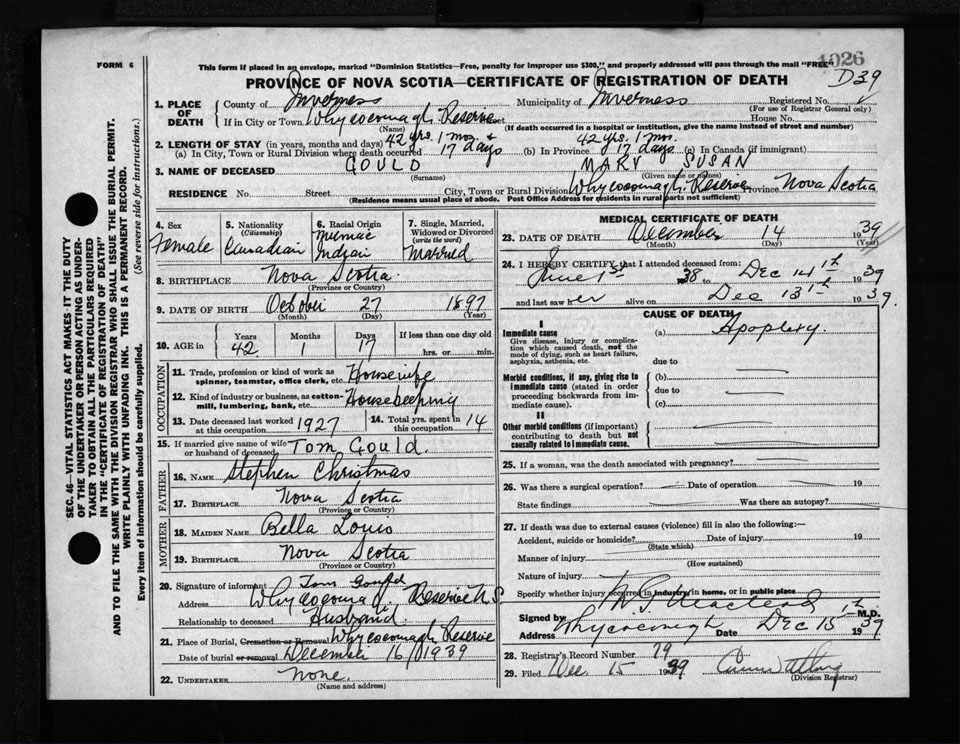 4026
FORM 6
This form if placed in an envelope, marked "Dominion Statistics—Free, penalty for improper use $300," and properly addressed will pass through the mail "FREE"
PROVINCE OF NOVA SCOTIA—CERTIFICATE OF REGISTRATION OF DEATH D39
1. PLACE OF DEATH County of Inverness Municipality of Inverness Registered No.
(For use of Registrar General only)
If in City or Town Whycocomagh Reserve Street House No.
(Name) (If death occurred in a hospital or institution, give the name instead of street and number)
2. LENGTH OF STAY (in years, months and days) 42 yrs. 1 mos. & 42 yrs. 1 mo.
(a) In City, Town or Rural Division where death occurred 17 days (b) In Province 17 days (c) In Canada (if immigrant)
3. NAME OF DECEASED GOULD MARY SUSAN
(Surname) (Given name or names)
RESIDENCE No. Street City, Town or Rural Division Whycocomagh Reserve Province Nova Scotia
(Residence means usual place of abode. Post Office Address for residents in rural parts not sufficient)
4. Sex Female
5. Nationality (Citizenship) Canadian
6. Racial Origin Micmac Indian
7. Single, Married, Widowed or Divorced (write the word) Married
8. BIRTHPLACE Nova Scotia
(Province or Country)
9. DATE OF BIRTH October 27 1897
(Month) (Day) (Year)
10. AGE in Years 42 Months 1 Days 17 If less than one day old hrs. or min.
OCCUPATION
11. Trade, profession or kind of work as spinner, teamster, office clerk, etc. Housewife
12. Kind of industry or business, as cotton-mill, lumbering, bank, etc. Housekeeping
13. Date deceased last worked at this occupation 1927
14. Total yrs. spent in this occupation 14
15. If married give name of wife or husband of deceased Tom Gould.
FATHER
16. NAME Stephen Christmas
17. BIRTHPLACE Nova Scotia
(Province or Country)
MOTHER
18. MAIDEN NAME Bella Louis
19. BIRTHPLACE Nova Scotia
(Province or Country)
20. Signature of informant Tom Gould
Address Whycocomagh Reserve N.S.
Relationship to deceased Husband
21. Place of Burial, Cremation or Removal Whycocomagh Reserve
Date of burial or removal December 16/1939
22. UNDERTAKER None.
(Name and address)
MEDICAL CERTIFICATE OF DEATH
23. DATE OF DEATH December 14 1939
(Month) (Day) (Year)
24. I HEREBY CERTIFY that I attended deceased from:
June 1st 38 to Dec 14th 1939
and last saw her alive on Dec 13th 1939.
CAUSE OF DEATH
I
Immediate cause (a) Apoplexy.
Give disease, injury or complication which caused death, not the mode of dying, such as heart failure, asphyxia, asthenia, etc.
due to
Morbid conditions, if any, giving rise to immediate cause (stated in order proceeding backwards from immediate cause).
(b)
due to
(c)
II
Other morbid conditions (if important) contributing to death but not causally related to immediate cause.
25. If a woman, was the death associated with pregnancy?
26. Was there a surgical operation? Date of operation 19
State findings Was there an autopsy?
27. If death was due to external causes (violence) fill in also the following:—
Accident, suicide or homicide? Date of injury 19
(State which)
Manner of injury
(How sustained)
Nature of injury
Specify whether injury occurred in industry, in home, or in public place
Signed by MacLeod M.D.
Address Whycocomagh Date Dec 15th 1939
28. Registrar's Record Number 79
29. Filed Dec 15 1939
(Division Registrar)
SEC. 46—VITAL STATISTICS ACT MAKES IT THE DUTY
OF THE UNDERTAKER OR PERSON ACTING AS UNDER-
TAKER TO OBTAIN ALL THE PARTICULARS REQUIRED
IN THE "CERTIFICATE OF REGISTRATION OF DEATH"
AND TO FILE THE SAME WITH THE DIVISION REGISTRAR WHO SHALL ISSUE THE BURIAL PERMIT.
WRITE PLAINLY WITH UNFADING INK. THIS IS A PERMANENT RECORD.
Every item of information should be carefully supplied. (See reverse side for instructions.)